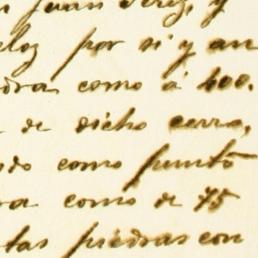 Juan Perez, y
por si y an
como á 400.
de dicho cerro,
do como punto
ra como de 75
tas piedras con